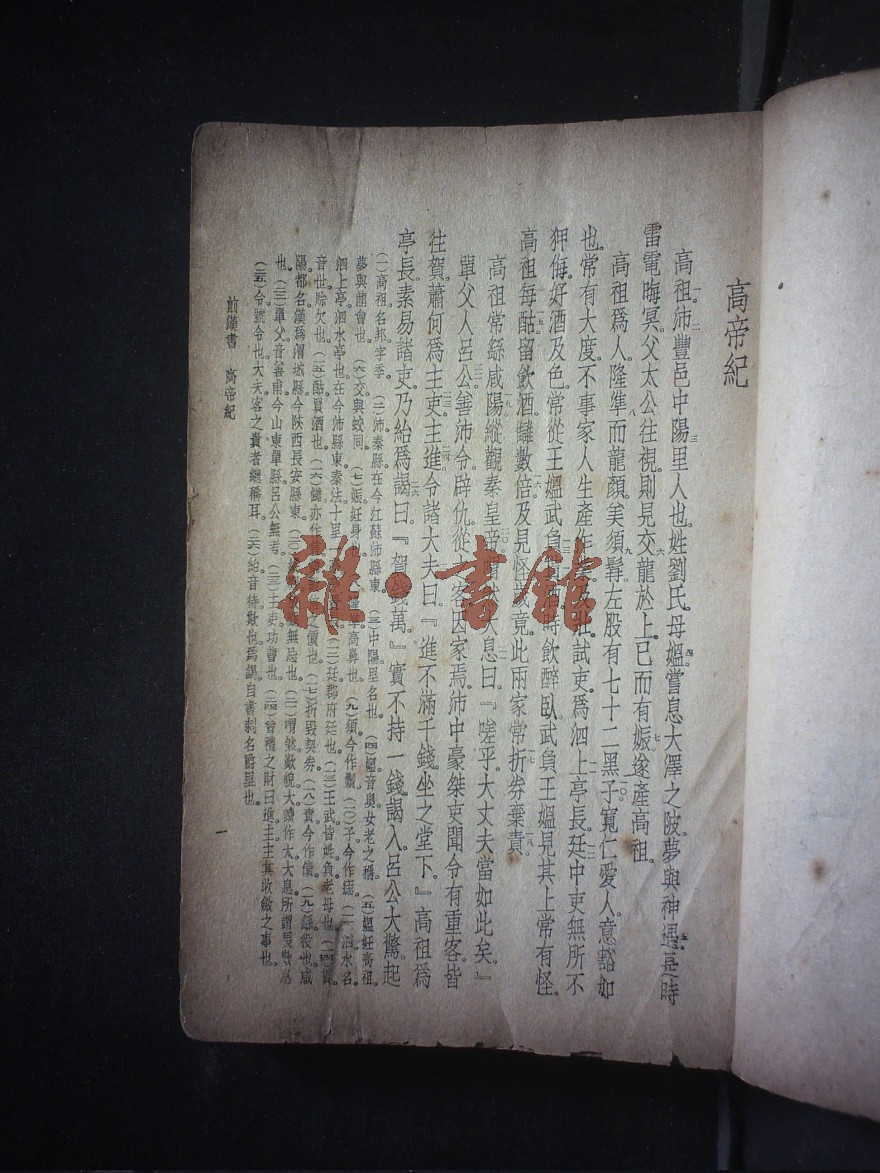 高帝紀
高祖沛豐邑中陽里人也姓劉氏母媼嘗息大澤之陂夢與神遇是時
雷電晦冥父太公往視則見交龍於上已而有娠遂產高祖
高祖爲人隆準而龍顏美須髯左股有七十二黑子寬仁愛人意豁如
也常有大度不事家人生產作業及壯試吏爲泗上亭長廷中吏無所不
狎侮好酒及色常從王媼武負貰酒時飲醉臥武負王媼見其上常有怪
高祖每酤留飲酒讎數倍及見怪歲竟此兩家常折券棄責
高祖常繇咸陽縱觀秦皇帝喟然大息曰『嗟乎大丈夫當如此矣』
單父人呂公善沛令辟仇從之客因家焉沛中豪桀吏聞令有重客皆
往賀蕭何爲主吏主進令諸大夫曰『進不滿千錢坐之堂下』高祖爲
亭長素易諸吏乃紿爲謁曰『賀錢萬』實不持一錢謁入呂公大驚起
(一)高祖名邦字季(二)沛秦縣在今江蘇沛縣東(三)中陽里名也(四)媼音奧女老之稱(五)媼妊高祖
夢與龍會也(六)交與蛟同(七)娠妊身也 高鼻也(九)須今作鬚(一〇)子今作痣(一一)泗水名
泗上亭泗水亭也在今沛縣東秦法十里 (一二)廷郡府廷也(一三)王武皆姓負老母也(一四)貰
音世賒欠也(一五)酤買酒也(一六)讎亦作 之價也(一七)折毀契券(一八)責今作債(一九)繇役也咸
陽都名漢爲渭城縣今陝西長安縣東(二〇) 無忌也(二一)喟然歎貌大讀作太大息所謂長歎息
也(二二)單父音善甫今山東單縣呂公無考(二三)主吏功曹也(二四)會禮之財曰進主主其收斂之事也
(二五)令號令也大夫客之貴者繼稱耳(二六)紿音待欺也爲謁自書刺名爵里也
前漢書 高帝紀
一
雜·書館